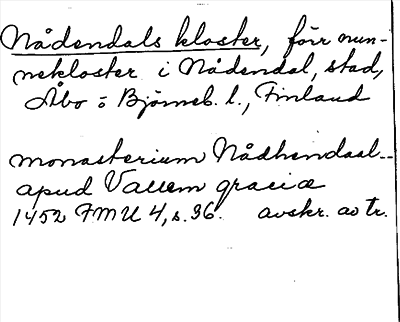 Nådendals kloster, förr nun-
nekloster i Nådendal, stad,
Åbo o Björneb. l., Finland
monasterium Nådhendaal--
apud Vallem gracie
1452 FMU 4, s. 36. avskr. av tr.